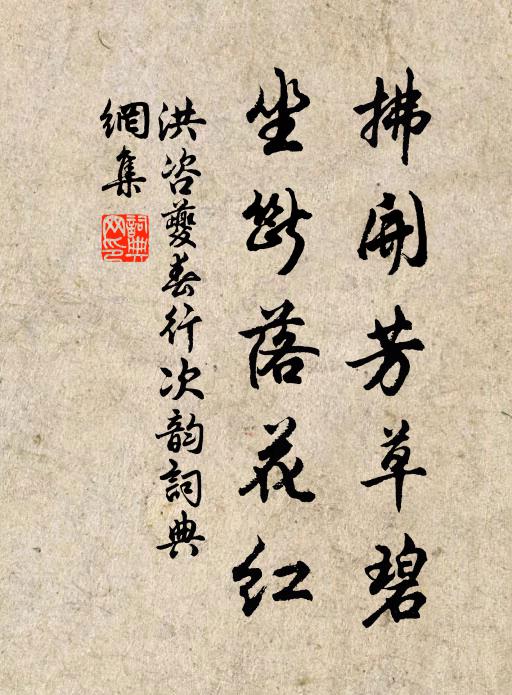 拂開芳草碧
坐斷落花紅
洪咨夔春行次韵詞典
網集
詞典網印